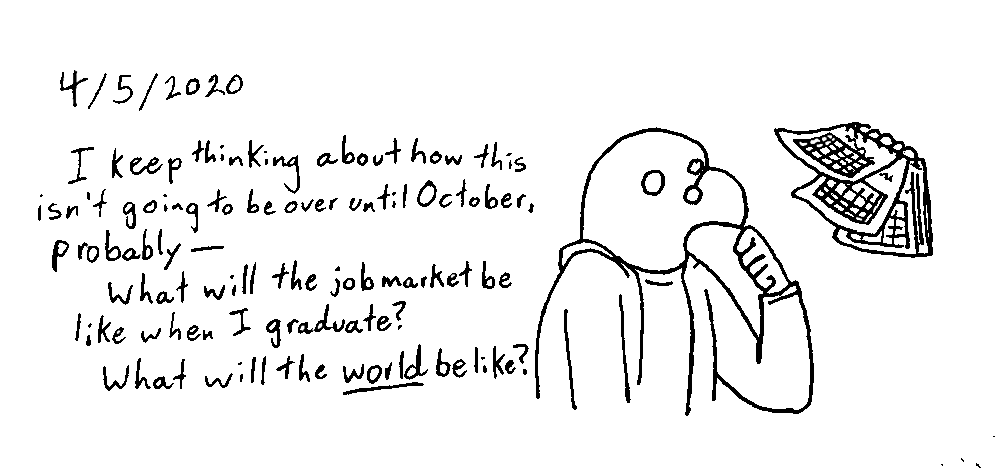 4/5/2020
I keep thinking about how this
isn't going to be over until October,
probably —
What will the job market be
like when I graduate?
What will the world be like?